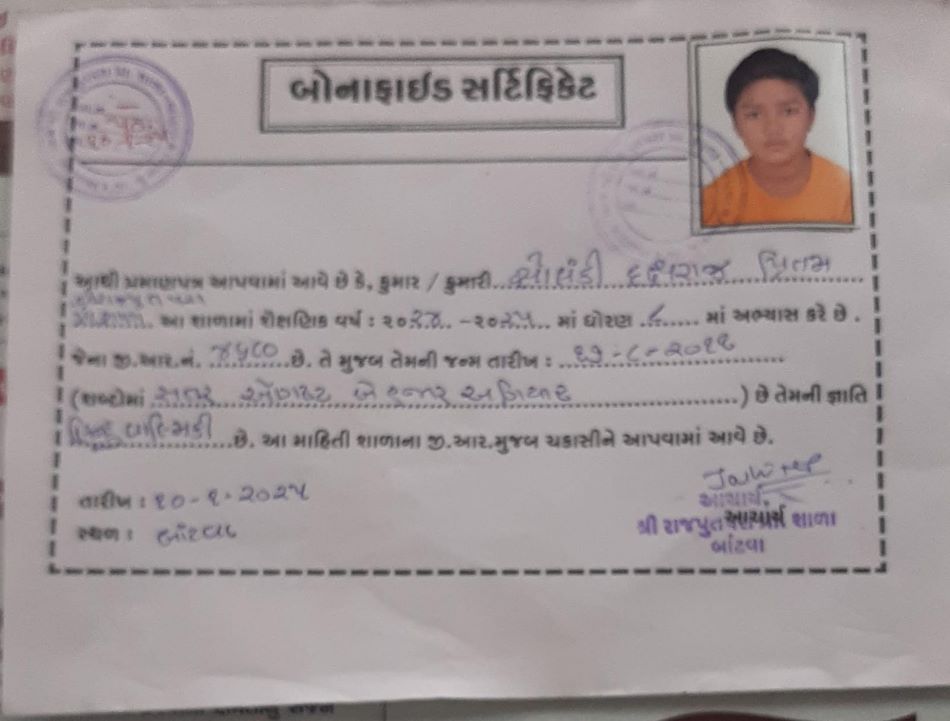 બોનાફાઈડ સર્ટિફિકેટ
આથી પ્રમાણપત્ર આપવામાં આવે છે કે, કુમાર / કુમારી સોલંકી દક્ષરાજ પ્રિતમ
આ શાળામાં શૈક્ષણિક વર્ષ : ૨૦૨૪ -૨૦૨૫ માં ધોરણ ૮ માં અભ્યાસ કરે છે .
જેના જી.આર.નં. ૪૫૮૦ છે. તે મુજબ તેમની જન્મ તારીખ : ૧૭-૮-૨૦૧૧
(શબ્દોમાં સત્તર ઓગષ્ટ બે હજાર અગિયાર ) છે તેમની જ્ઞાતિ
હિન્દુ વાલ્મિકી છે. આ માહિતી શાળાના જી.આર.મુજબ ચકાસીને આપવામાં આવે છે.
તારીખ : ૧૦-૧-૨૦૨૫
સ્થળ : બાંટવા
આચાર્ય
શ્રી રાજપુત શાળા
બાંટવા